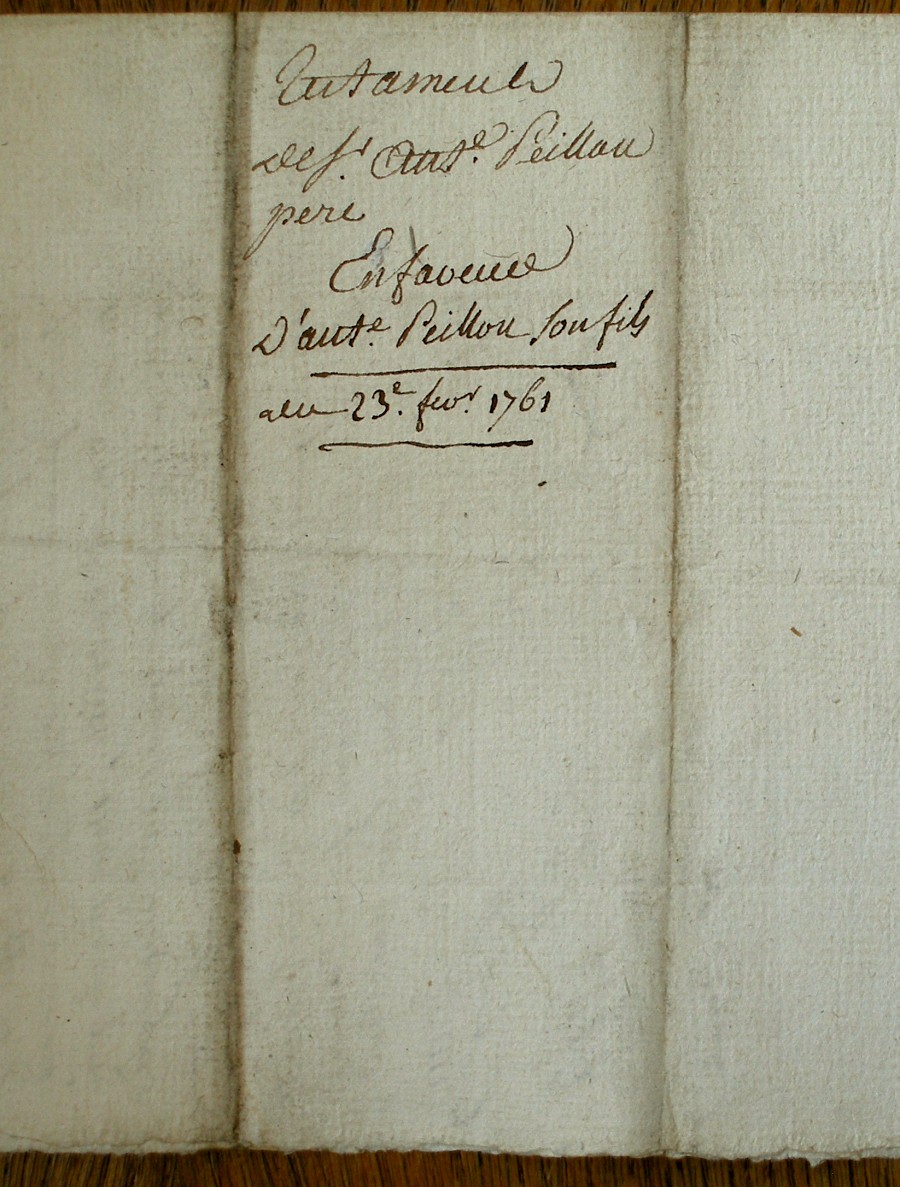 Testament
de Sr. Ante. Peillon
pere
En faveur
D'ante. Peillon Son fils
du 23e. fevr. 1761